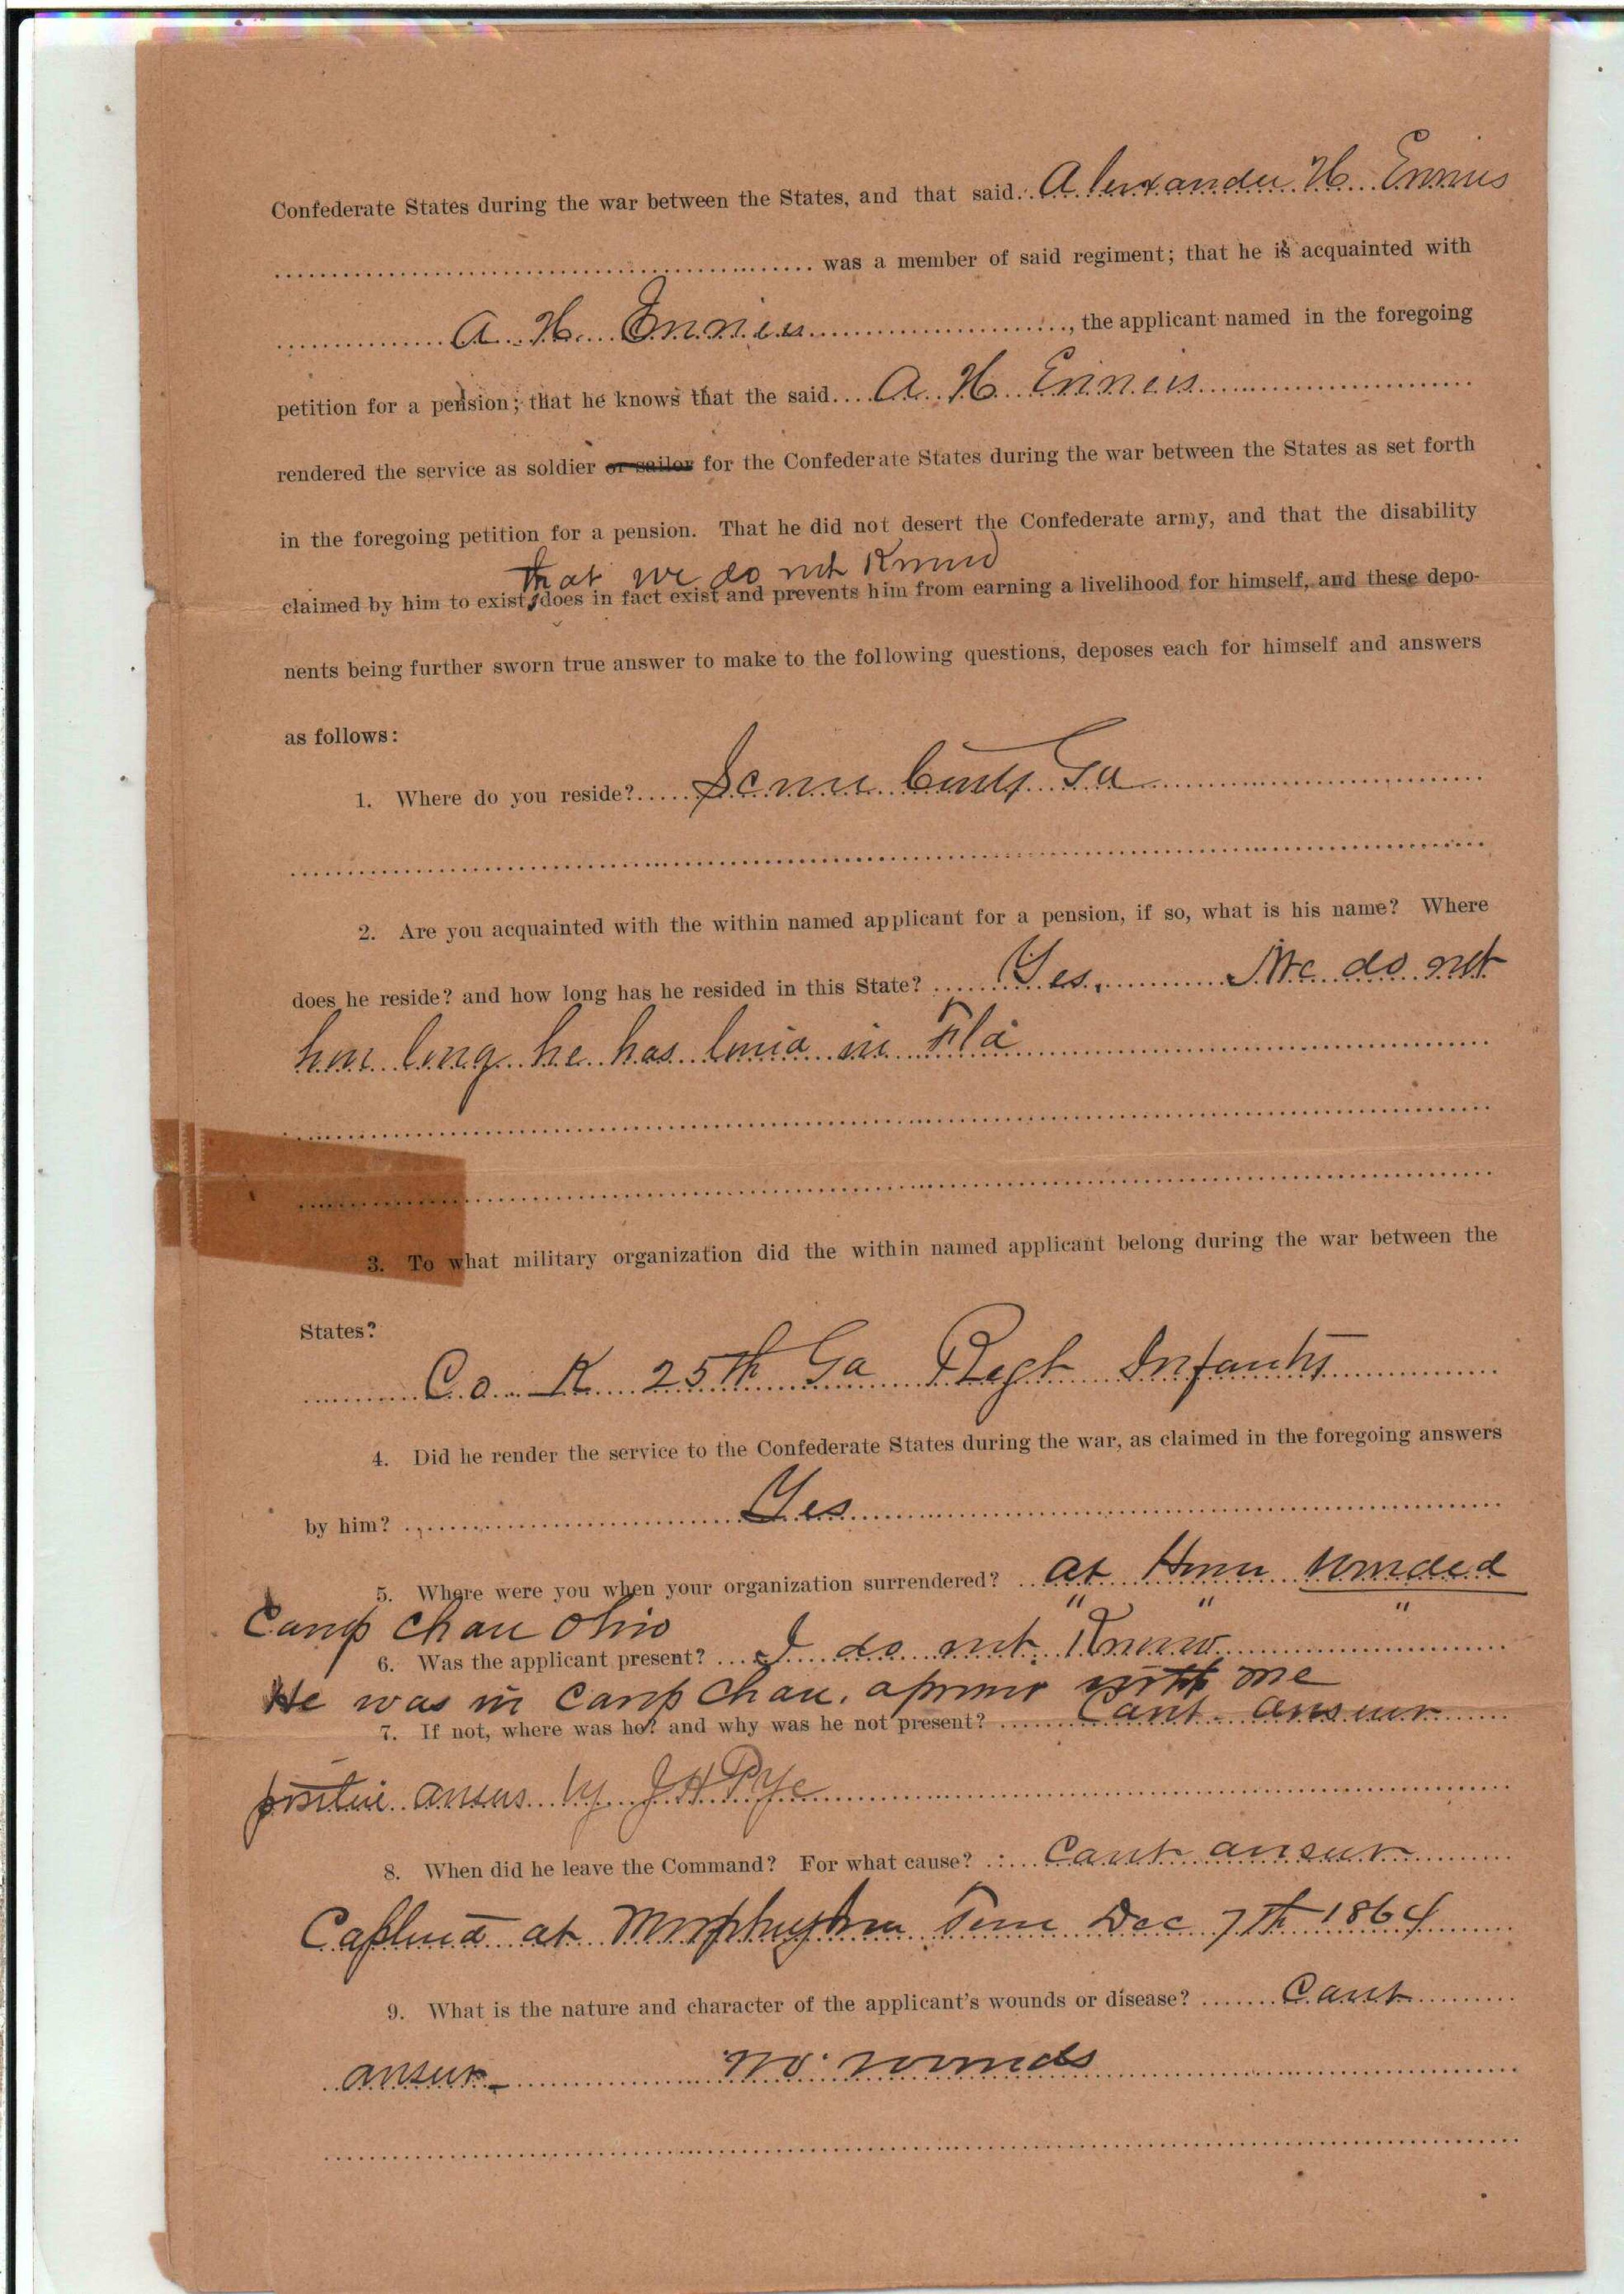 Confederate States during the war between the States, and that said Alexander H. Ennis
was a member of said regiment; that he is acquainted with
A. H. Ennis, the applicant named in the foregoing
petition for a pension; that he knows that the said A. H. Ennis
rendered the service as soldier or sailor for the Confederate States during the war between the States as set forth
in the foregoing petition for a pension. That he did not desert the Confederate army, and that the disability
that we do not Know
claimed by him to exist, does in fact exist and prevents him from earning a livelihood for himself, and these depo-
nents being further sworn true answer to make to the following questions, deposes each for himself and answers
as follows:
1. Where do you reside? Ga
2. Are you acquainted with the within named applicant for a pension, if so, what is his name? Where
does he reside? and how long has he resided in this State? Yes. We do not
how long he has in Fla
3. To what military organization did the within named applicant belong during the war between the
States?
Co. K 25th Ga Regt Infantry
4. Did he render the service to the Confederate States during the war, as claimed in the foregoing answers
by him? Yes
5. Where were you when your organization surrendered? at Home wounded
" " "
Camp Chase Ohio
6. Was the applicant present? I do not Know
He was in Camp Chase, a prisner with me
7. If not, where was he? and why was he not present? Cant answer
positive by J H Pye
8. When did he leave the Command? For what cause? Cant answer
at Tenn Dec 7th 1864
9. What is the nature and character of the applicant's wounds or disease? Cant
answer no wounds